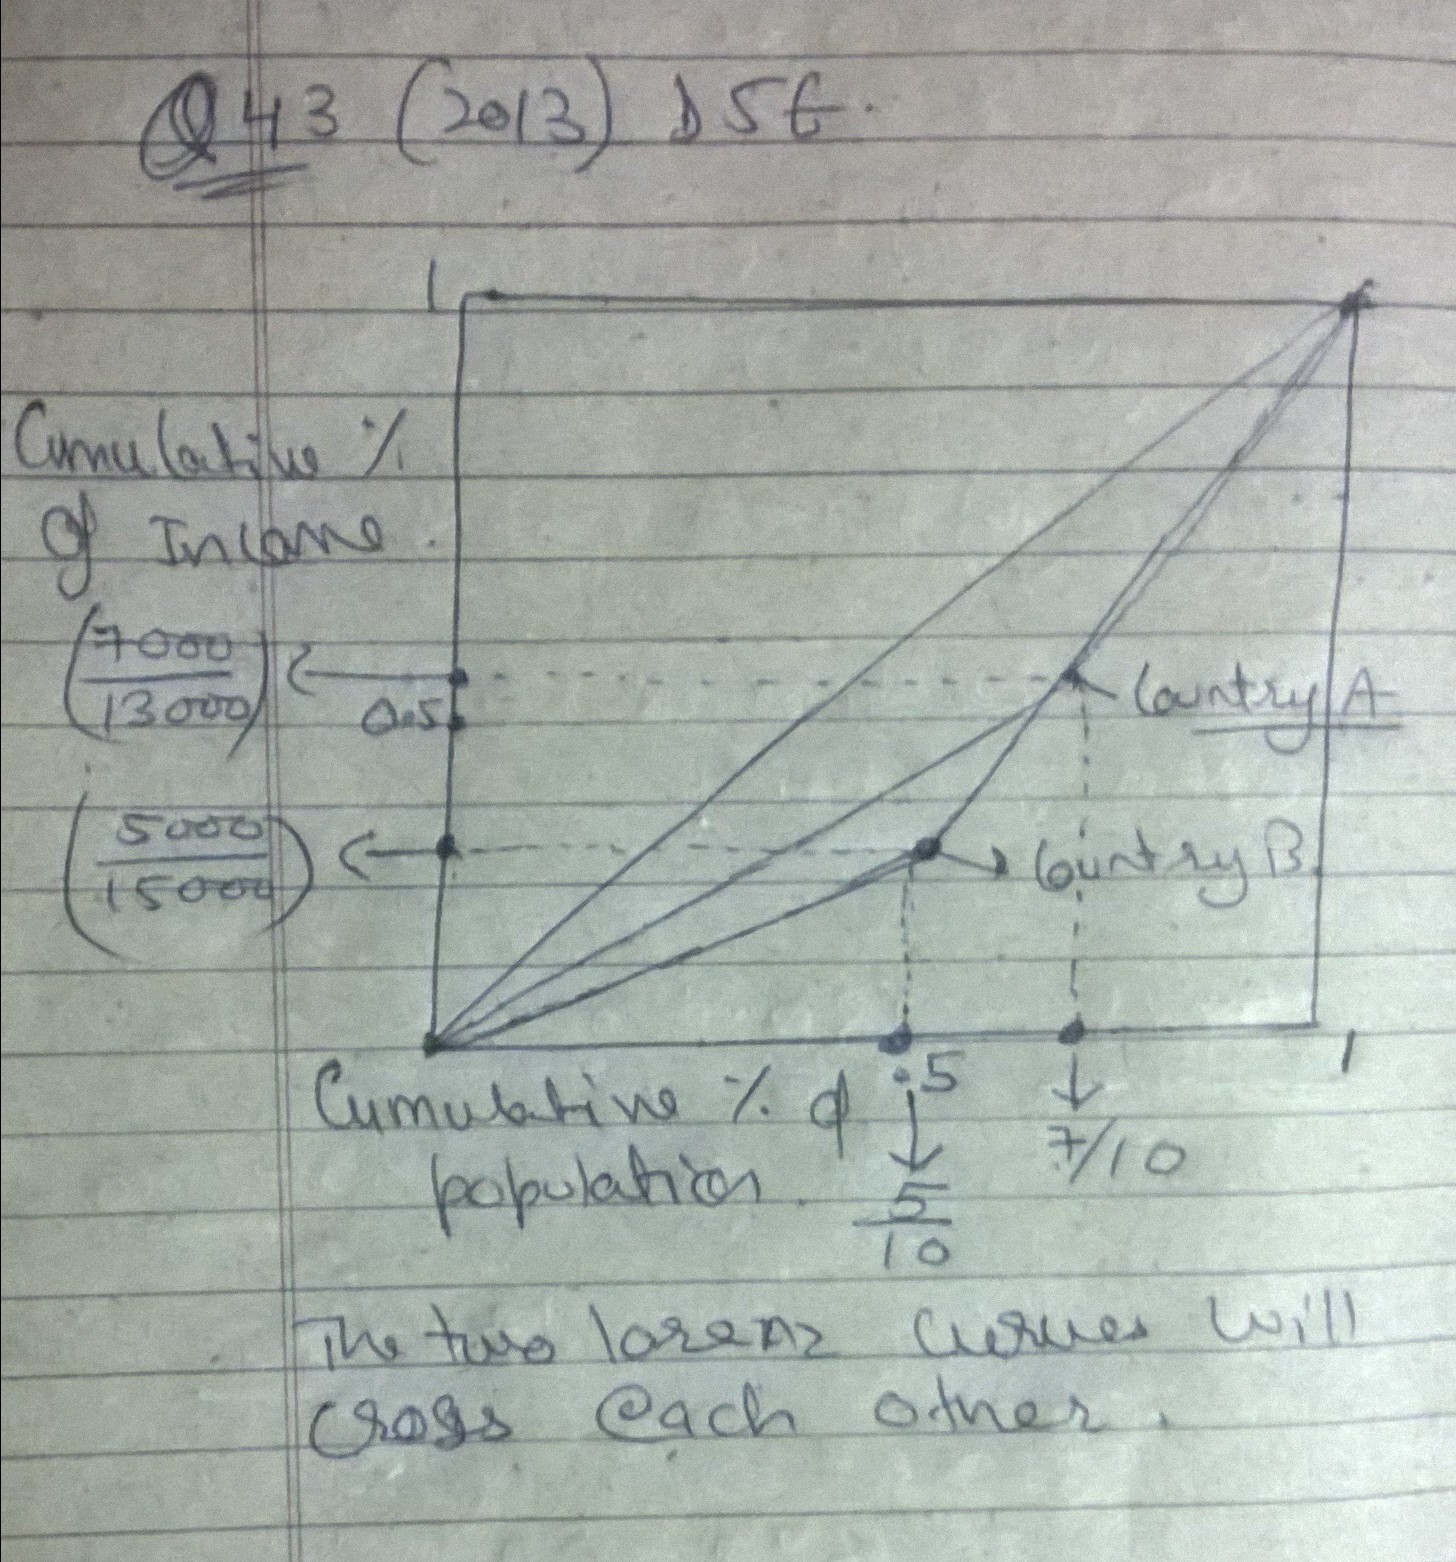 Q43 (2013) DSE.
1
Cumulative %
of Income.
(7000/13000)
0.5
Country A
(5000/15000)
Country B
1
.5
Cumulative % of
population.
7/10
5/10
The two lorenz curves will
cross each other.